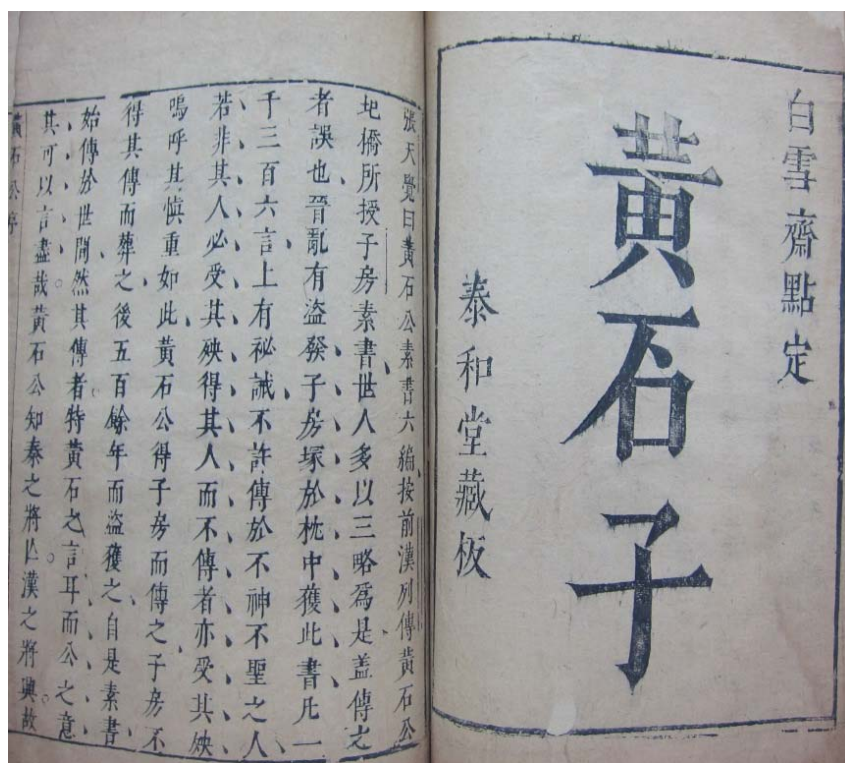 白雪齋點定
黃石子
泰和堂藏板
張天覺曰黃石公素書六編按前漢列傳黃石公
圯橋所授子房素書世人多以三略爲是盖傳之
者誤也晉亂有盜發子房塚於枕中獲此書凡一
千三百六言上有祕誡不許傳於不神不聖之人
若非其人必受其殃得其人而不傳者亦受其殃
嗚呼其慎重如此黃石公得子房而傳之子房不
得其傳而葬之後五百餘年而盜獲之自是素書
始傳於世間然其傳者特黃石之言耳而公之意
其可以言盡哉黃石公知秦之將亡漢之將興故
黃石公序